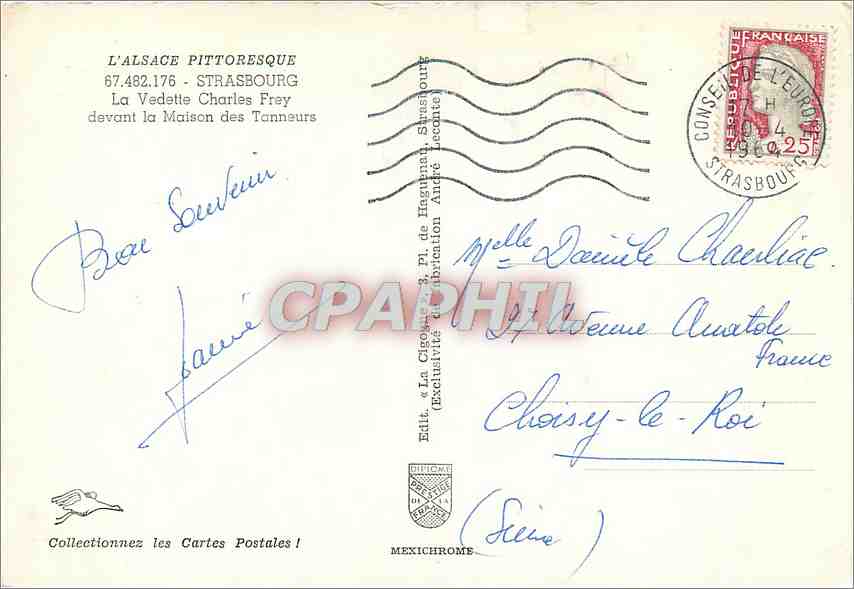 L'ALSACE PITTORESQUE
67.482.176 - STRASBOURG
La Vedette Charles Frey
devant la Maison des Tanneurs
Bon Souvenir
Collectionnez les Cartes Postales !
Edit. « La Cigogne », 3, Pl. de Haguenau, Strasbourg
(Exclusivité de fabrication André Leconte)
DIPLOME
PRESTIGE
DE LA
FRANCE
MEXICHROME
REPUBLIQUE FRANÇAISE
0,25
CONSEIL DE L'EUROPE
17 H
10 - 4
1964
STRASBOURG
Melle Danièle
27 Avenue Anatole
France
Choisy-le-Roi
(Seine)
CPAPHIL